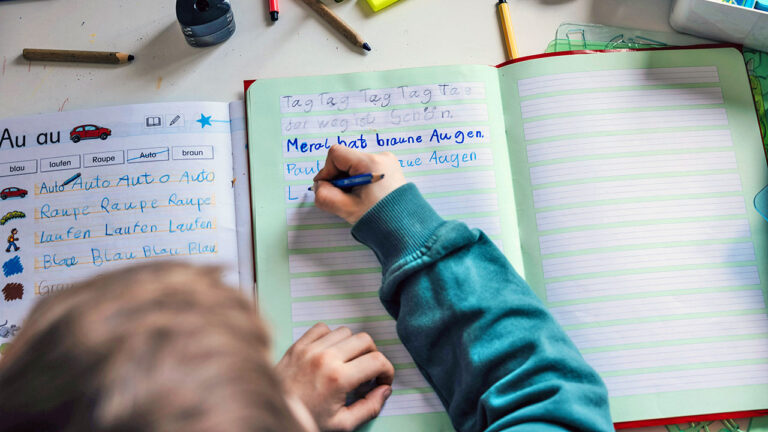 Au au
blau laufen Raupe Auto braun
Auto Auto Auto Auto
Raupe Raupe Raupe
Laufen Laufen Laufen
Blau Blau Blau Blau
Tag Tag Tag Tag Tag
der weg ist Schön.
Meral hat braune Augen.
Paul Augen
L